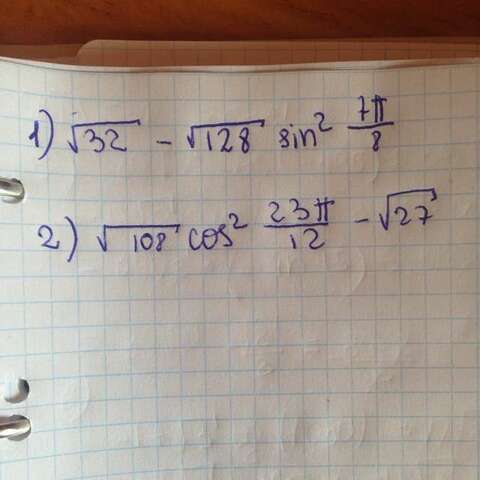 1) √32 - √128 sin² 7π/8
2) √108 cos² 23π/12 - √27